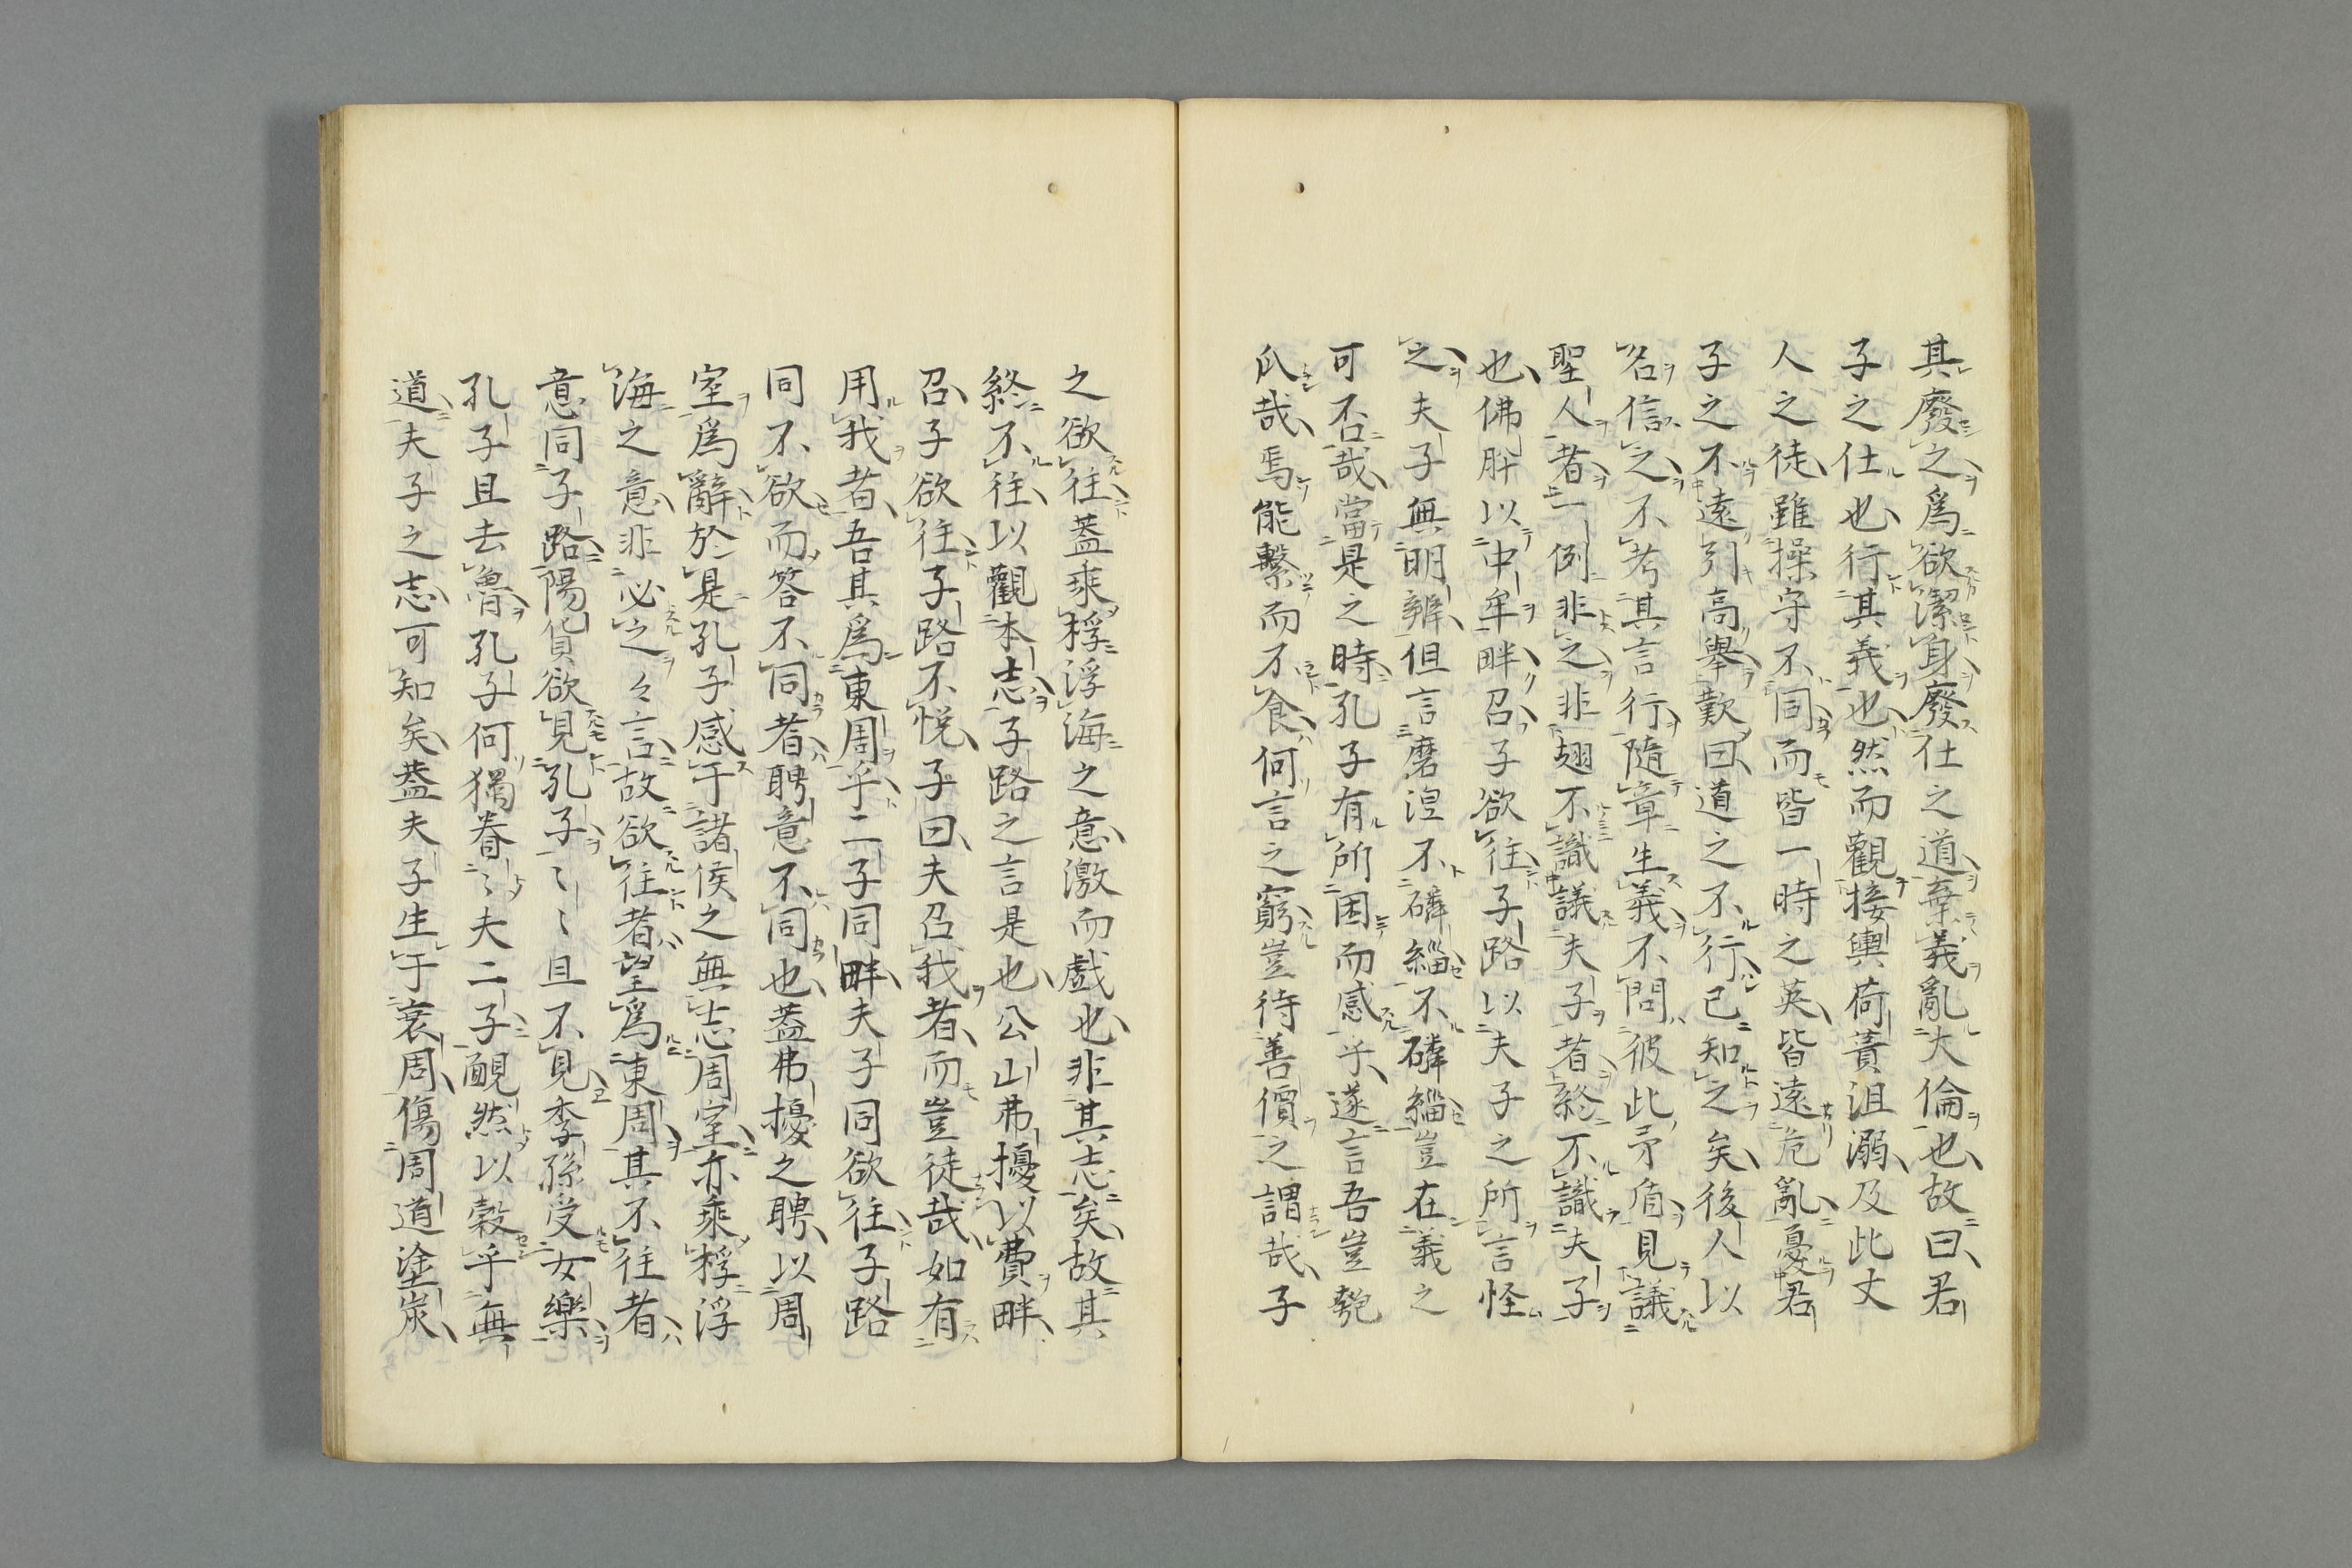 其廢之爲欲潔身廢仕之道棄義亂大倫也故曰君
子之仕也行其義也然而觀接輿荷蕢沮溺及此丈
人之徒雖操守不同而皆一時之英皆遠危亂憂君
子之不遠引高擧歎曰道之不行已知之矣後人以
名信之不考其言行隨章生義不問彼此矛盾見議
聖人者一例非之非翅不識議夫子者終不識夫子
也佛肸以中牟畔召子欲往子路以夫子之所言怪
之夫子無明辨但言磨涅不磷緇不磷緇豈在義之
可否哉當是之時孔子有所困而感乎遂言吾豈匏
瓜哉焉能繫而不食何言之窮豈待善價之謂哉子
之欲往蓋乘桴浮海之意激而戲也非其志矣故其
終不往以觀本志子路之言是也公山弗擾以費畔
召子欲往子路不悦子曰夫召我者而豈徒哉如有
用我者吾其爲東周乎二子同畔夫子同欲往子路
同不欲而答不同者聘意不同也蓋弗擾之聘以周
室爲辭於是孔子感于諸侯之無志周室亦乘桴浮
海之意非必之々言故欲往者望爲東周其不往者
意同子路陽貨欲見孔子〻〻且不見季孫受女樂
孔子且去魯孔子何獨眷〻夫二子靦然以穀乎無
道夫子之志可知矣蓋夫子生于衰周傷周道塗炭